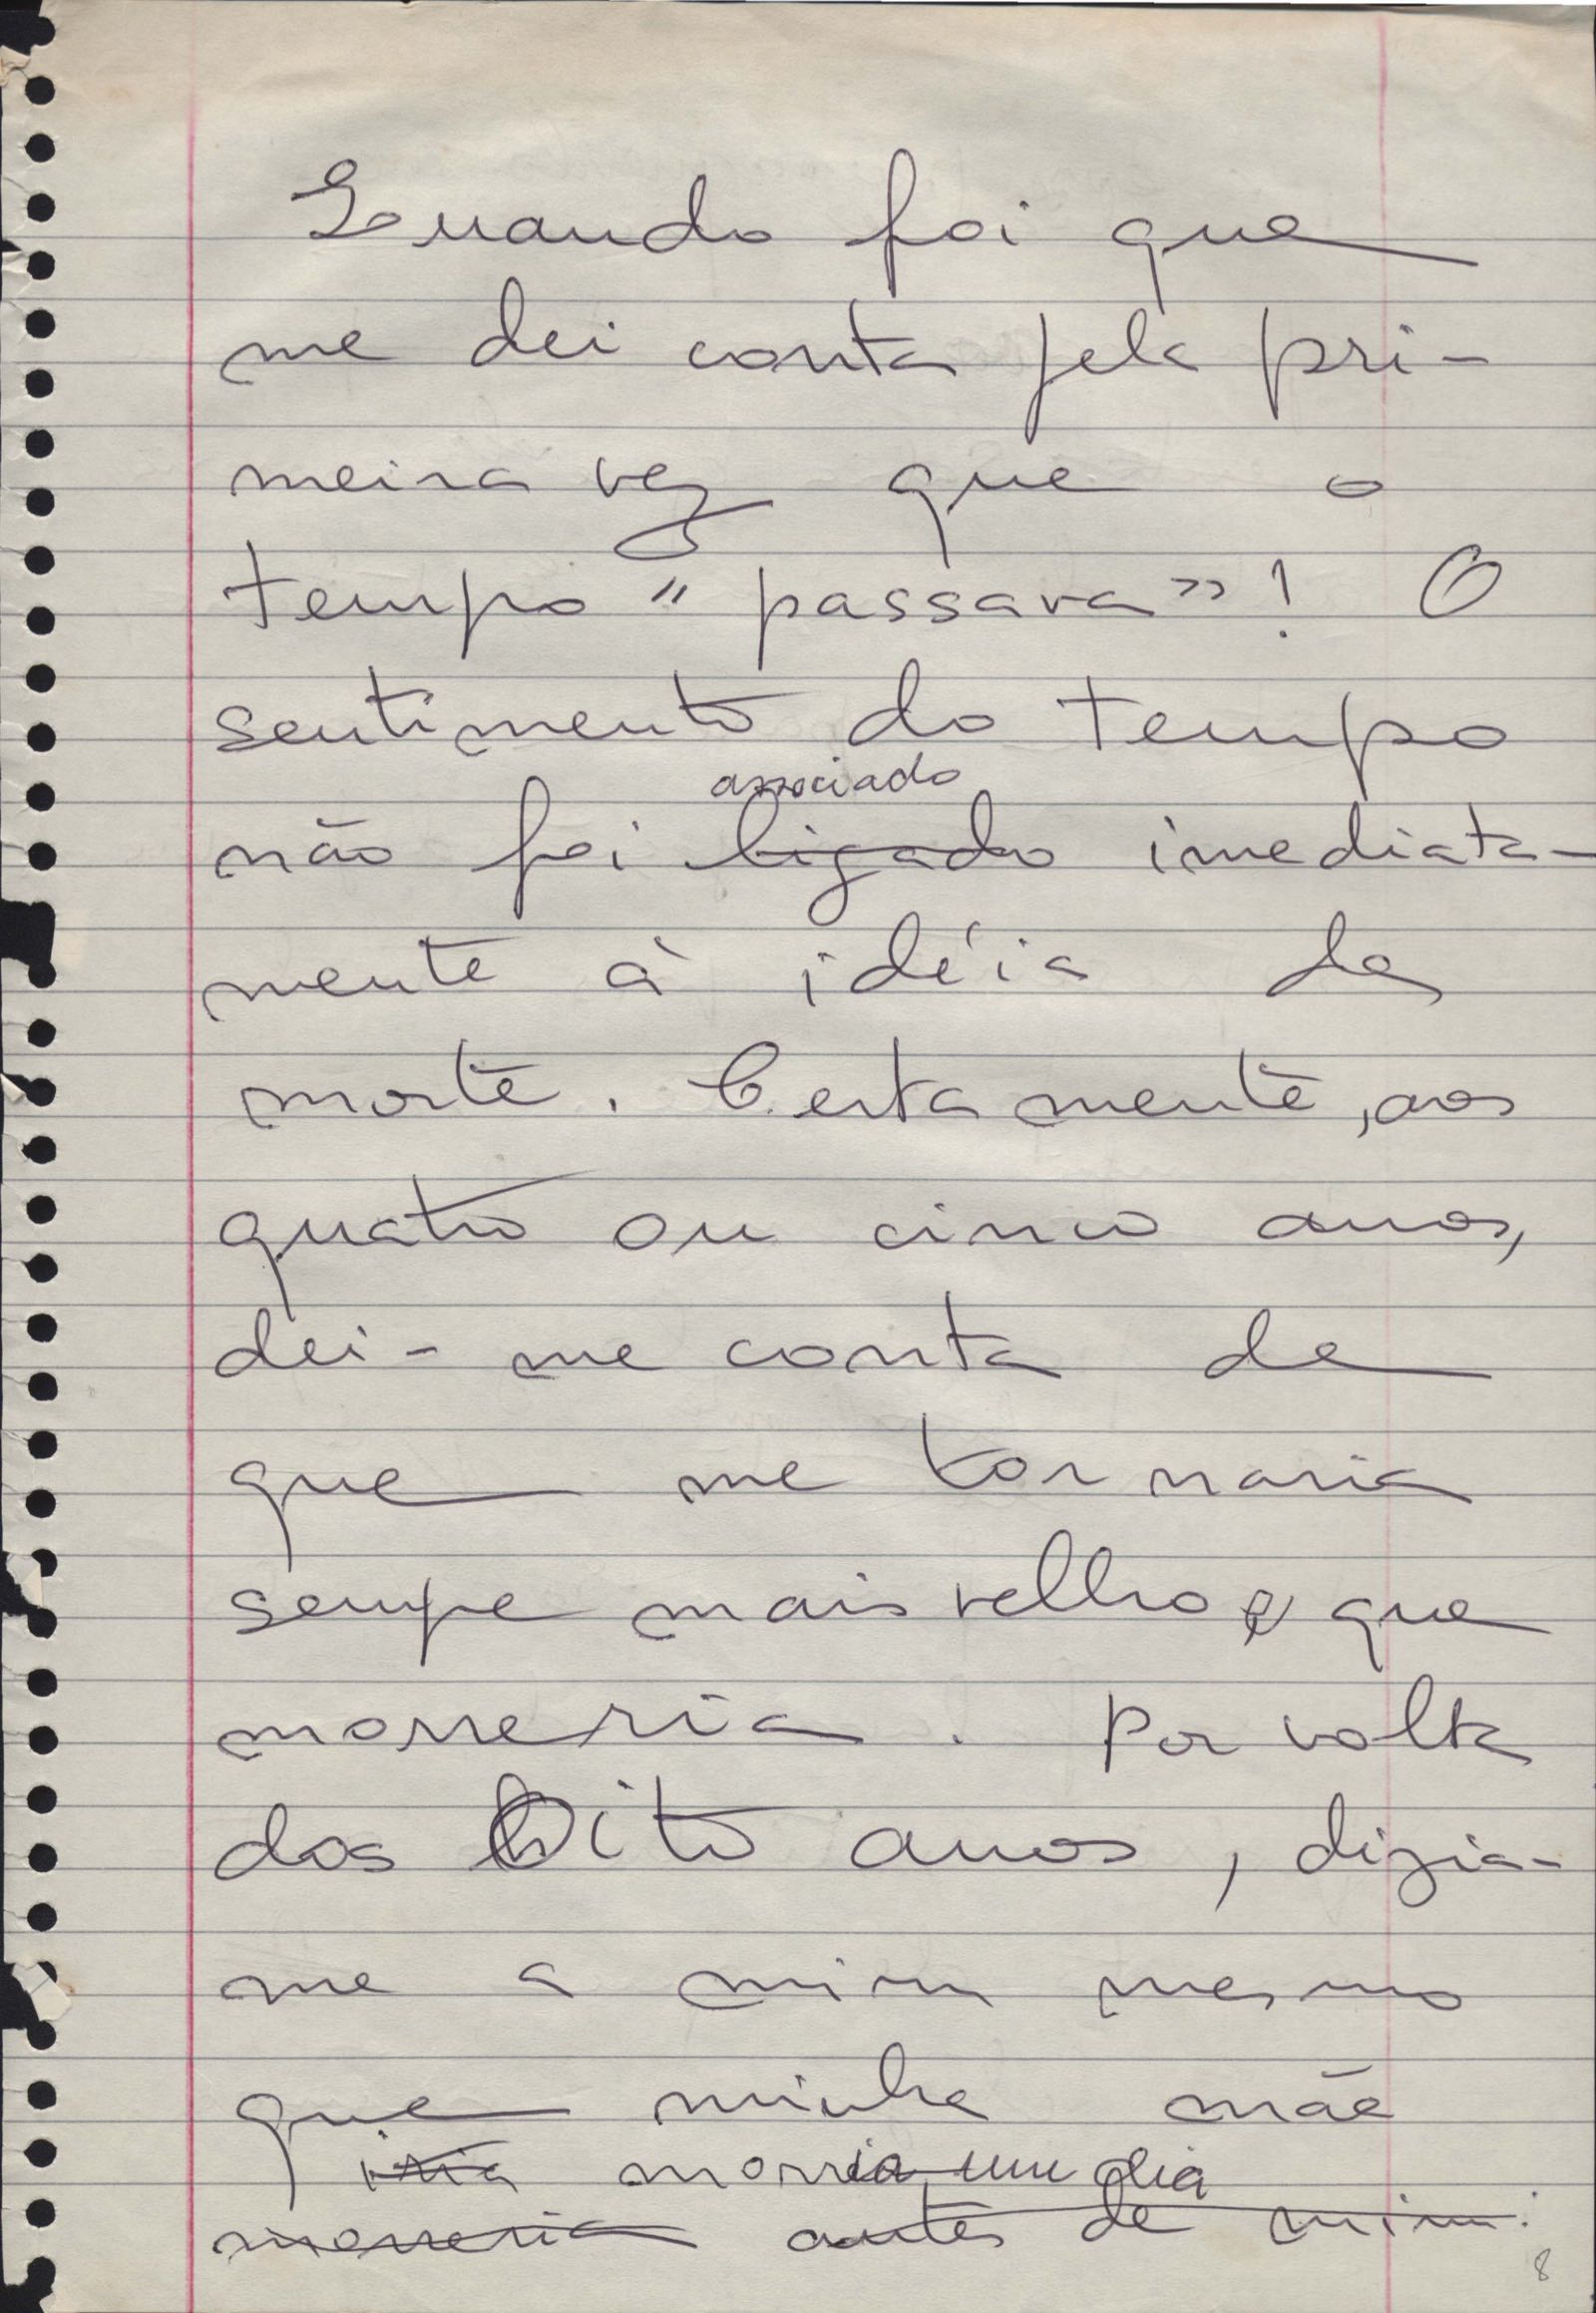 Quando foi que
me dei conta pela pri-
meira vez que o
tempo "passava"! O
sentimento do tempo
associado
não foi ligado imediata-
mente à idéia da
morte. Certamente, aos
quatro ou cinco anos,
dei-me conta de
que me tornaria
sempre mais velho e que
morreria. Por volta
dos Oito anos, dizia-
me a mim mesmo
que minha mãe
iria morrer um dia
morreria antes de mim.
8